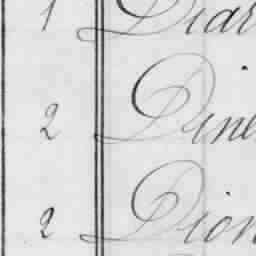 1 Diar
2 Dine
2 Dion